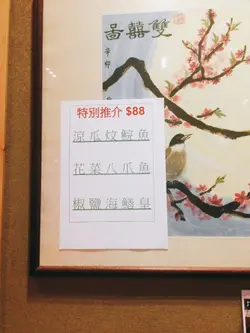 雙囍啚
辛卯
特別推介 $88
涼瓜炆鯇魚
花菜八爪魚
椒鹽海鱔皇